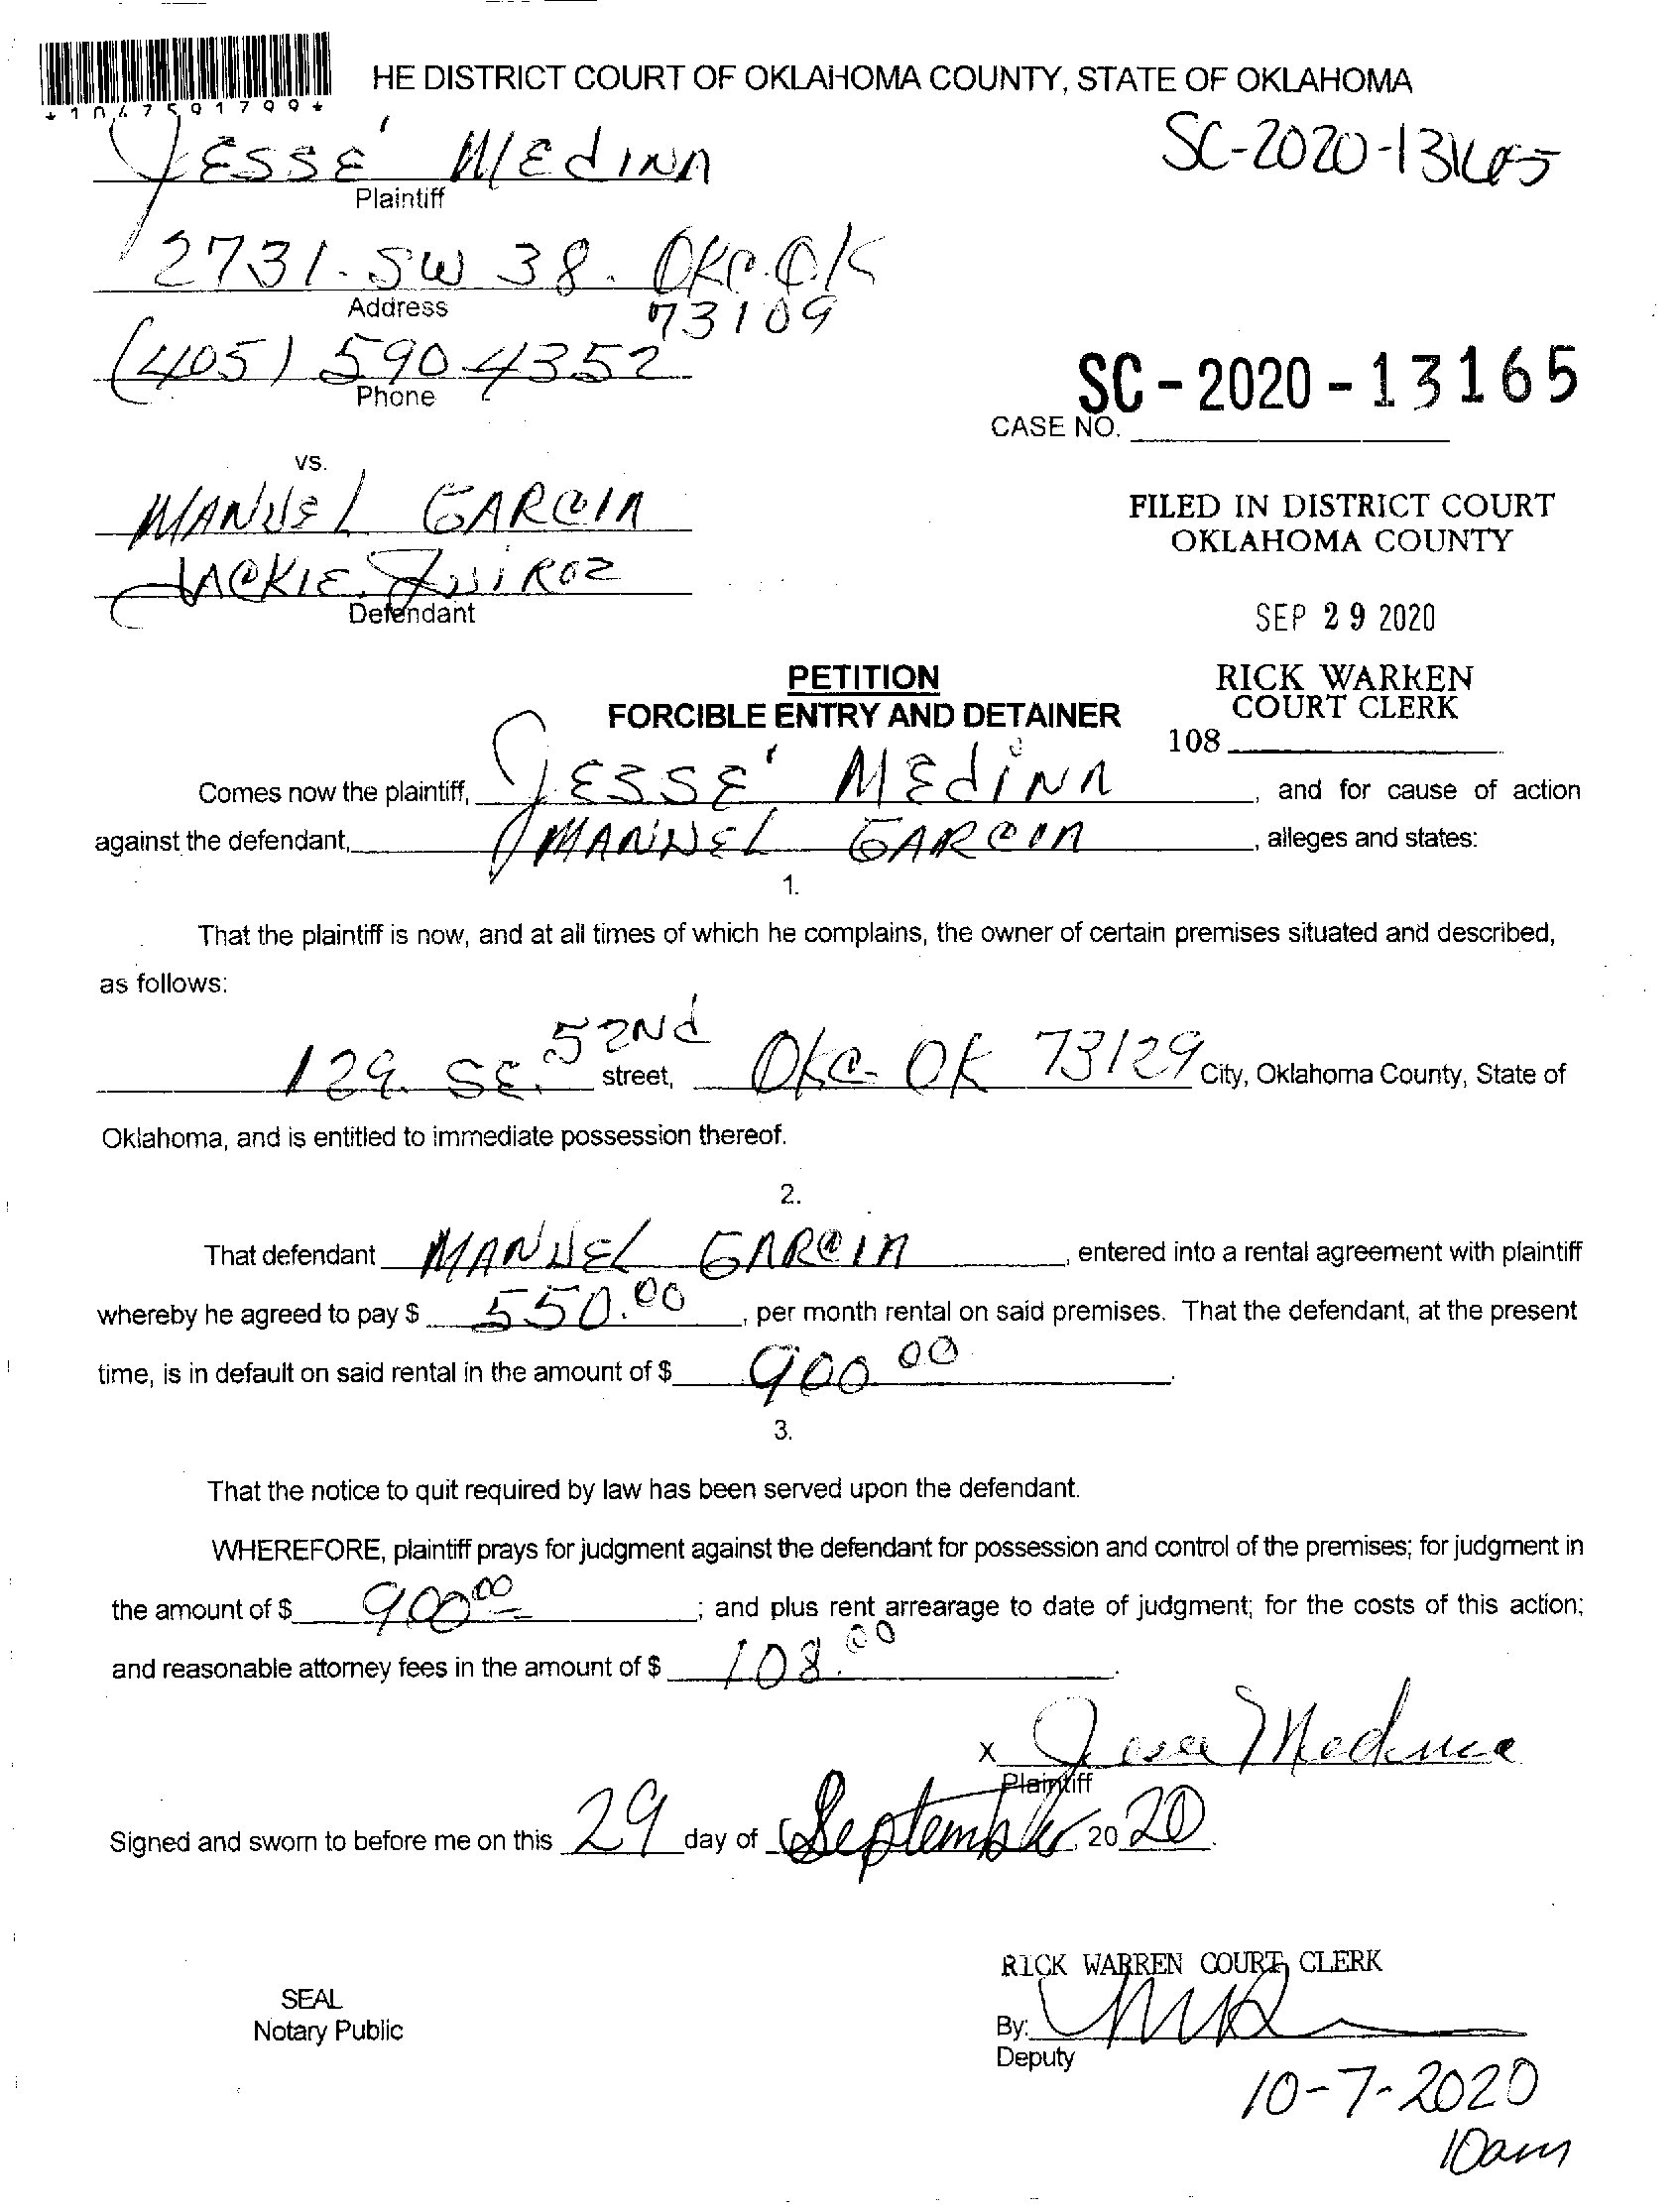 HE DISTRICT COURT OF OKLAHOMA COUNTY, STATE OF OKLAHOMA
*1047591799*
JESSE' MEdINA
SC-2020-13165
Plaintiff
2731. SW 38. OKC. OK
Address
73109
(405) 590-4352
Phone
SC-2020-13165
CASE NO.
vs.
MANUEL GARCIA
JACKIE. QUIROZ
Defendant
FILED IN DISTRICT COURT
OKLAHOMA COUNTY
SEP 29 2020
RICK WARREN
COURT CLERK
108
PETITION
FORCIBLE ENTRY AND DETAINER
Comes now the plaintiff, JESSE' MEdINA, and for cause of action
against the defendant, MANUEL GARCIA, alleges and states:
1.
That the plaintiff is now, and at all times of which he complains, the owner of certain premises situated and described,
as follows:
129. SE. 52Nd street, OKC- OK 73129 City, Oklahoma County, State of
Oklahoma, and is entitled to immediate possession thereof.
2.
That defendant MANUEL GARCIA, entered into a rental agreement with plaintiff
whereby he agreed to pay $ 550.00, per month rental on said premises. That the defendant, at the present
time, is in default on said rental in the amount of $ 900 00.
3.
That the notice to quit required by law has been served upon the defendant.
WHEREFORE, plaintiff prays for judgment against the defendant for possession and control of the premises; for judgment in
the amount of $ 900 00; and plus rent arrearage to date of judgment; for the costs of this action;
and reasonable attorney fees in the amount of $ 108.00.
x Jesse Medina
Plaintiff
Signed and sworn to before me on this 29 day of September, 2020.
RICK WARREN COURT CLERK
SEAL
Notary Public
By:
Deputy
10-7-2020
10am